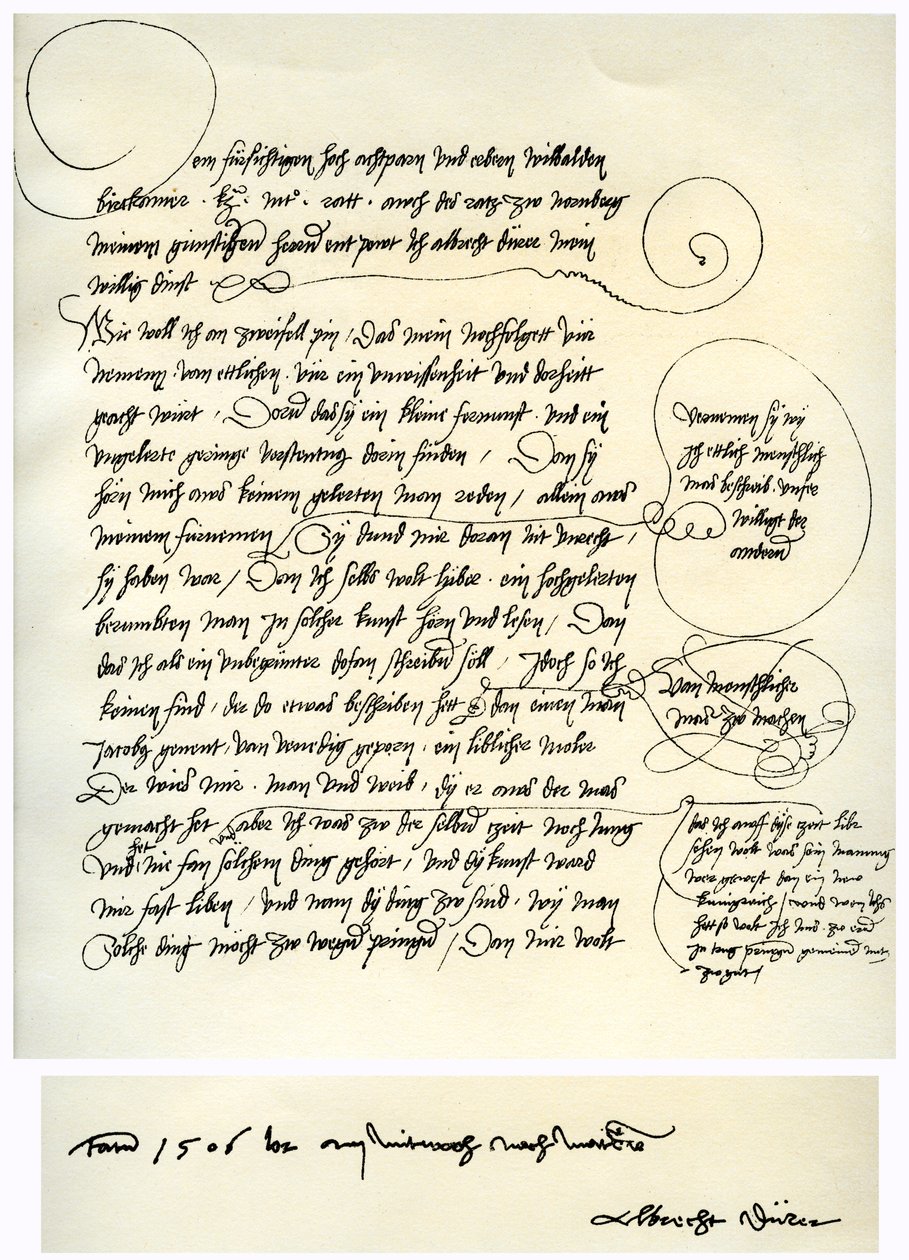 em fürsichtigen hoch achtparn vnd erbern wilbalden
birckamer . kz . mt . ratt . awch des ratz zw nornberg
meinem günstigen herrn ent pewt Ich albrecht dürer mein
willig dinst
Wie woll Ich an zweifell pin / Das mein nochfolgett vür
nemenn . van ettlichen . vür ein vnwissenheit vnd dorheitt
geacht würt / Dorum das sy ein kleine fernunst . vnd ein
vngelerte geringe verstentnus dorin finden / Dan sy
hörn mich aws keinem gelerten man reden / allein aws
meinem fürnemen / Sy dund mir doran nit vnrecht /
sy haben war / Dan Ich selbs wolt lyber . ein hochgelerten
berumbten man Jn solcher kunst hörn vnd lesen / Dan
das Ich als ein vnbegrünter dofan schreibn söll / Jdoch so Ich
keinen find / der do etwas beschriben hett dan einen man
Jacobus genent / van venedig geporn / ein liblicher moler
Der wies mir . man vnd weib / dy er aws der mas
gemacht het / aber Ich was zw der selbn czeit noch Jung
vnd het nie fan sölchem ding gehört / vnd dy kunst ward
mir fast liben / vnd nam dy ding zw sind / wy man
Solche ding möcht zw wegn pringn / Dan mir wolt
vernemen sy wy
Ich ettlich menschlich
mas beschreib . vnser
willigt der
andern
Van menschlicher
mas zw machen
das Ich awff dyse czeit libr
sehen wolt was sein mainung
wer gewest dan ein new
kunigreich / vnd wen Ichs
hett so wolt Ich Ims . zw ern
In trug pringen gemeinem nutz
zw gut /
Datum 1506 Jor am mitwoch noch
Albrecht Dürer